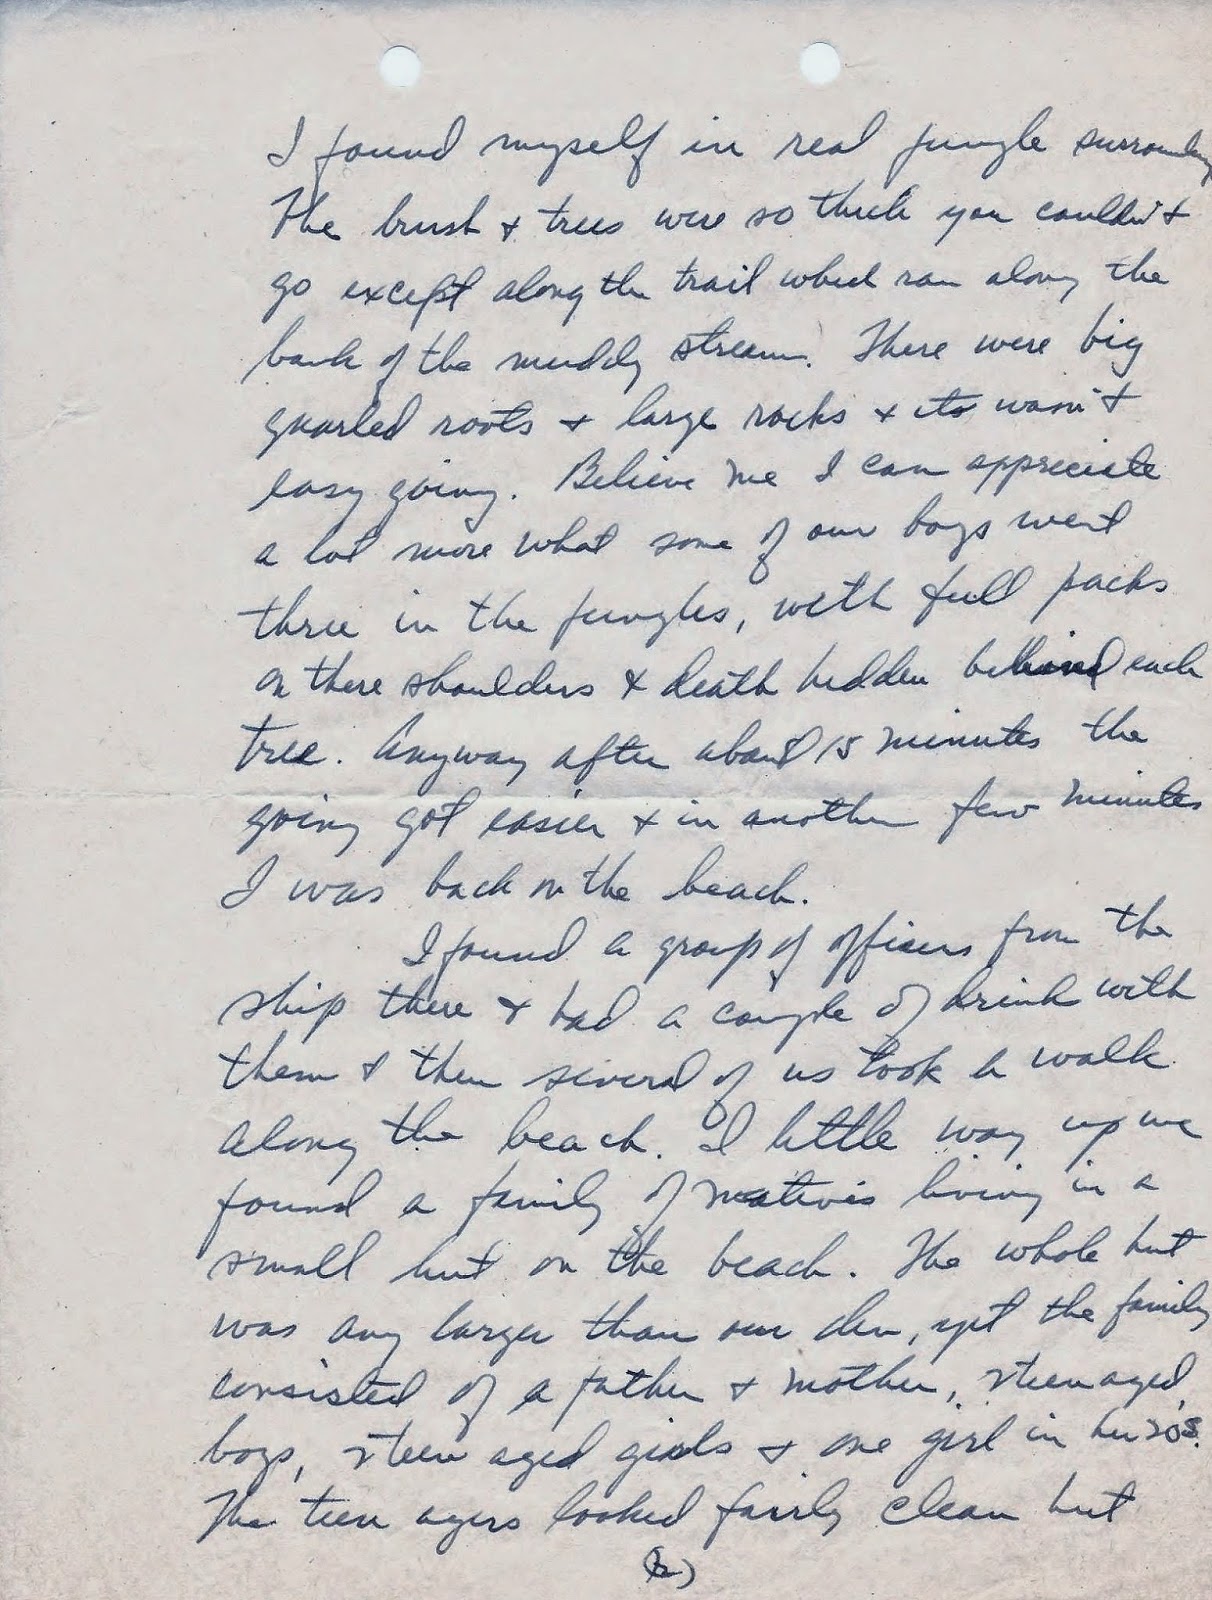 I found myself in real jungle surrounding
The brush & trees were so thick you couldn't
go except along the trail which ran along the
bank of the muddy stream. There were big
gnarled roots & large rocks & its wasn't
easy going. Believe me I can appreciate
a lot more what some of our boys went
threu in the jungles, with full packs
on there shoulders & death hidden behind each
tree. Anyway after about 15 minutes the
going got easier & in another few minutes
I was back on the beach.
I found a group of officers from the
ship there & had a couple of drink with
them & then several of us took a walk
along the beach. I little way up we
found a family of natives living in a
small hut on the beach. The whole hut
was any larger than our den, yet the family
consisted of a father & mother, 2 teen aged
boys, 2 teen aged girls & one girl in her 20s.
The teen agers looked fairly clean but